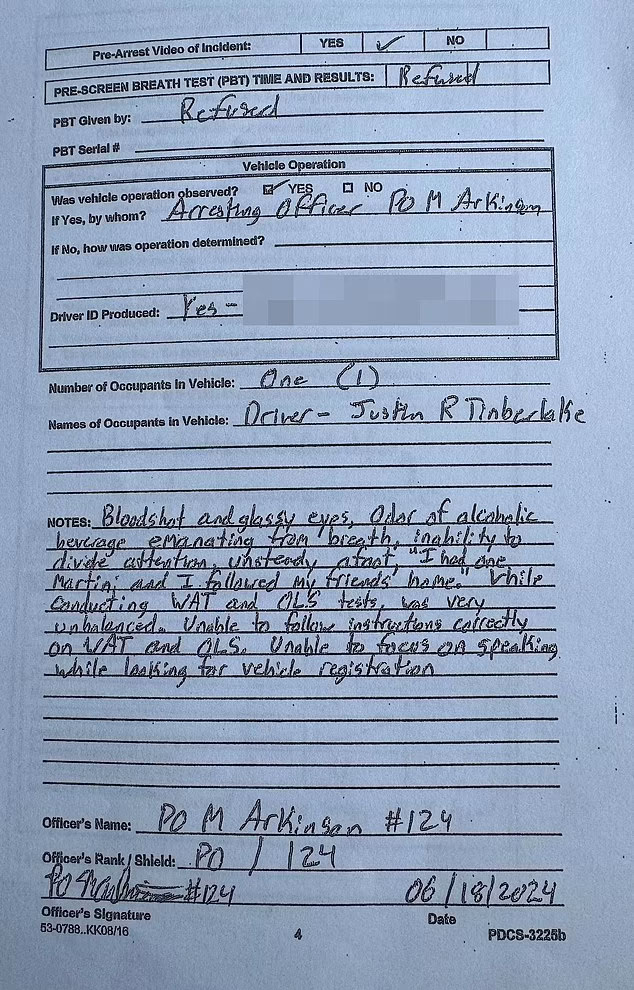 Pre-Arrest Video of Incident: YES ✓ NO
PRE-SCREEN BREATH TEST (PBT) TIME AND RESULTS: Refused
PBT Given by: Refused
PBT Serial #
Vehicle Operation
Was vehicle operation observed? ☑ YES ☐ NO
If Yes, by whom? Arresting Officer PO M Arkinson
If No, how was operation determined?
Driver ID Produced: Yes -
Number of Occupants in Vehicle: One (1)
Names of Occupants in Vehicle: Driver - Justin R Timberlake
NOTES: Bloodshot and glassy eyes, Odor of alcoholic
beverage emanating from breath, inability to
divide attention, unsteady afoot, "I had one
Martini and I followed my friends home." While
conducting WAT and OLS tests, was very
unbalanced. Unable to follow instructions correctly
on WAT and OLS. Unable to focus on speaking
while looking for vehicle registration
Officer's Name: PO M Arkinson #124
Officer's Rank / Shield: PO / 124
PO #124 06/18/2024
Officer's Signature Date
53-0788..KK08/16 4 PDCS-3225b